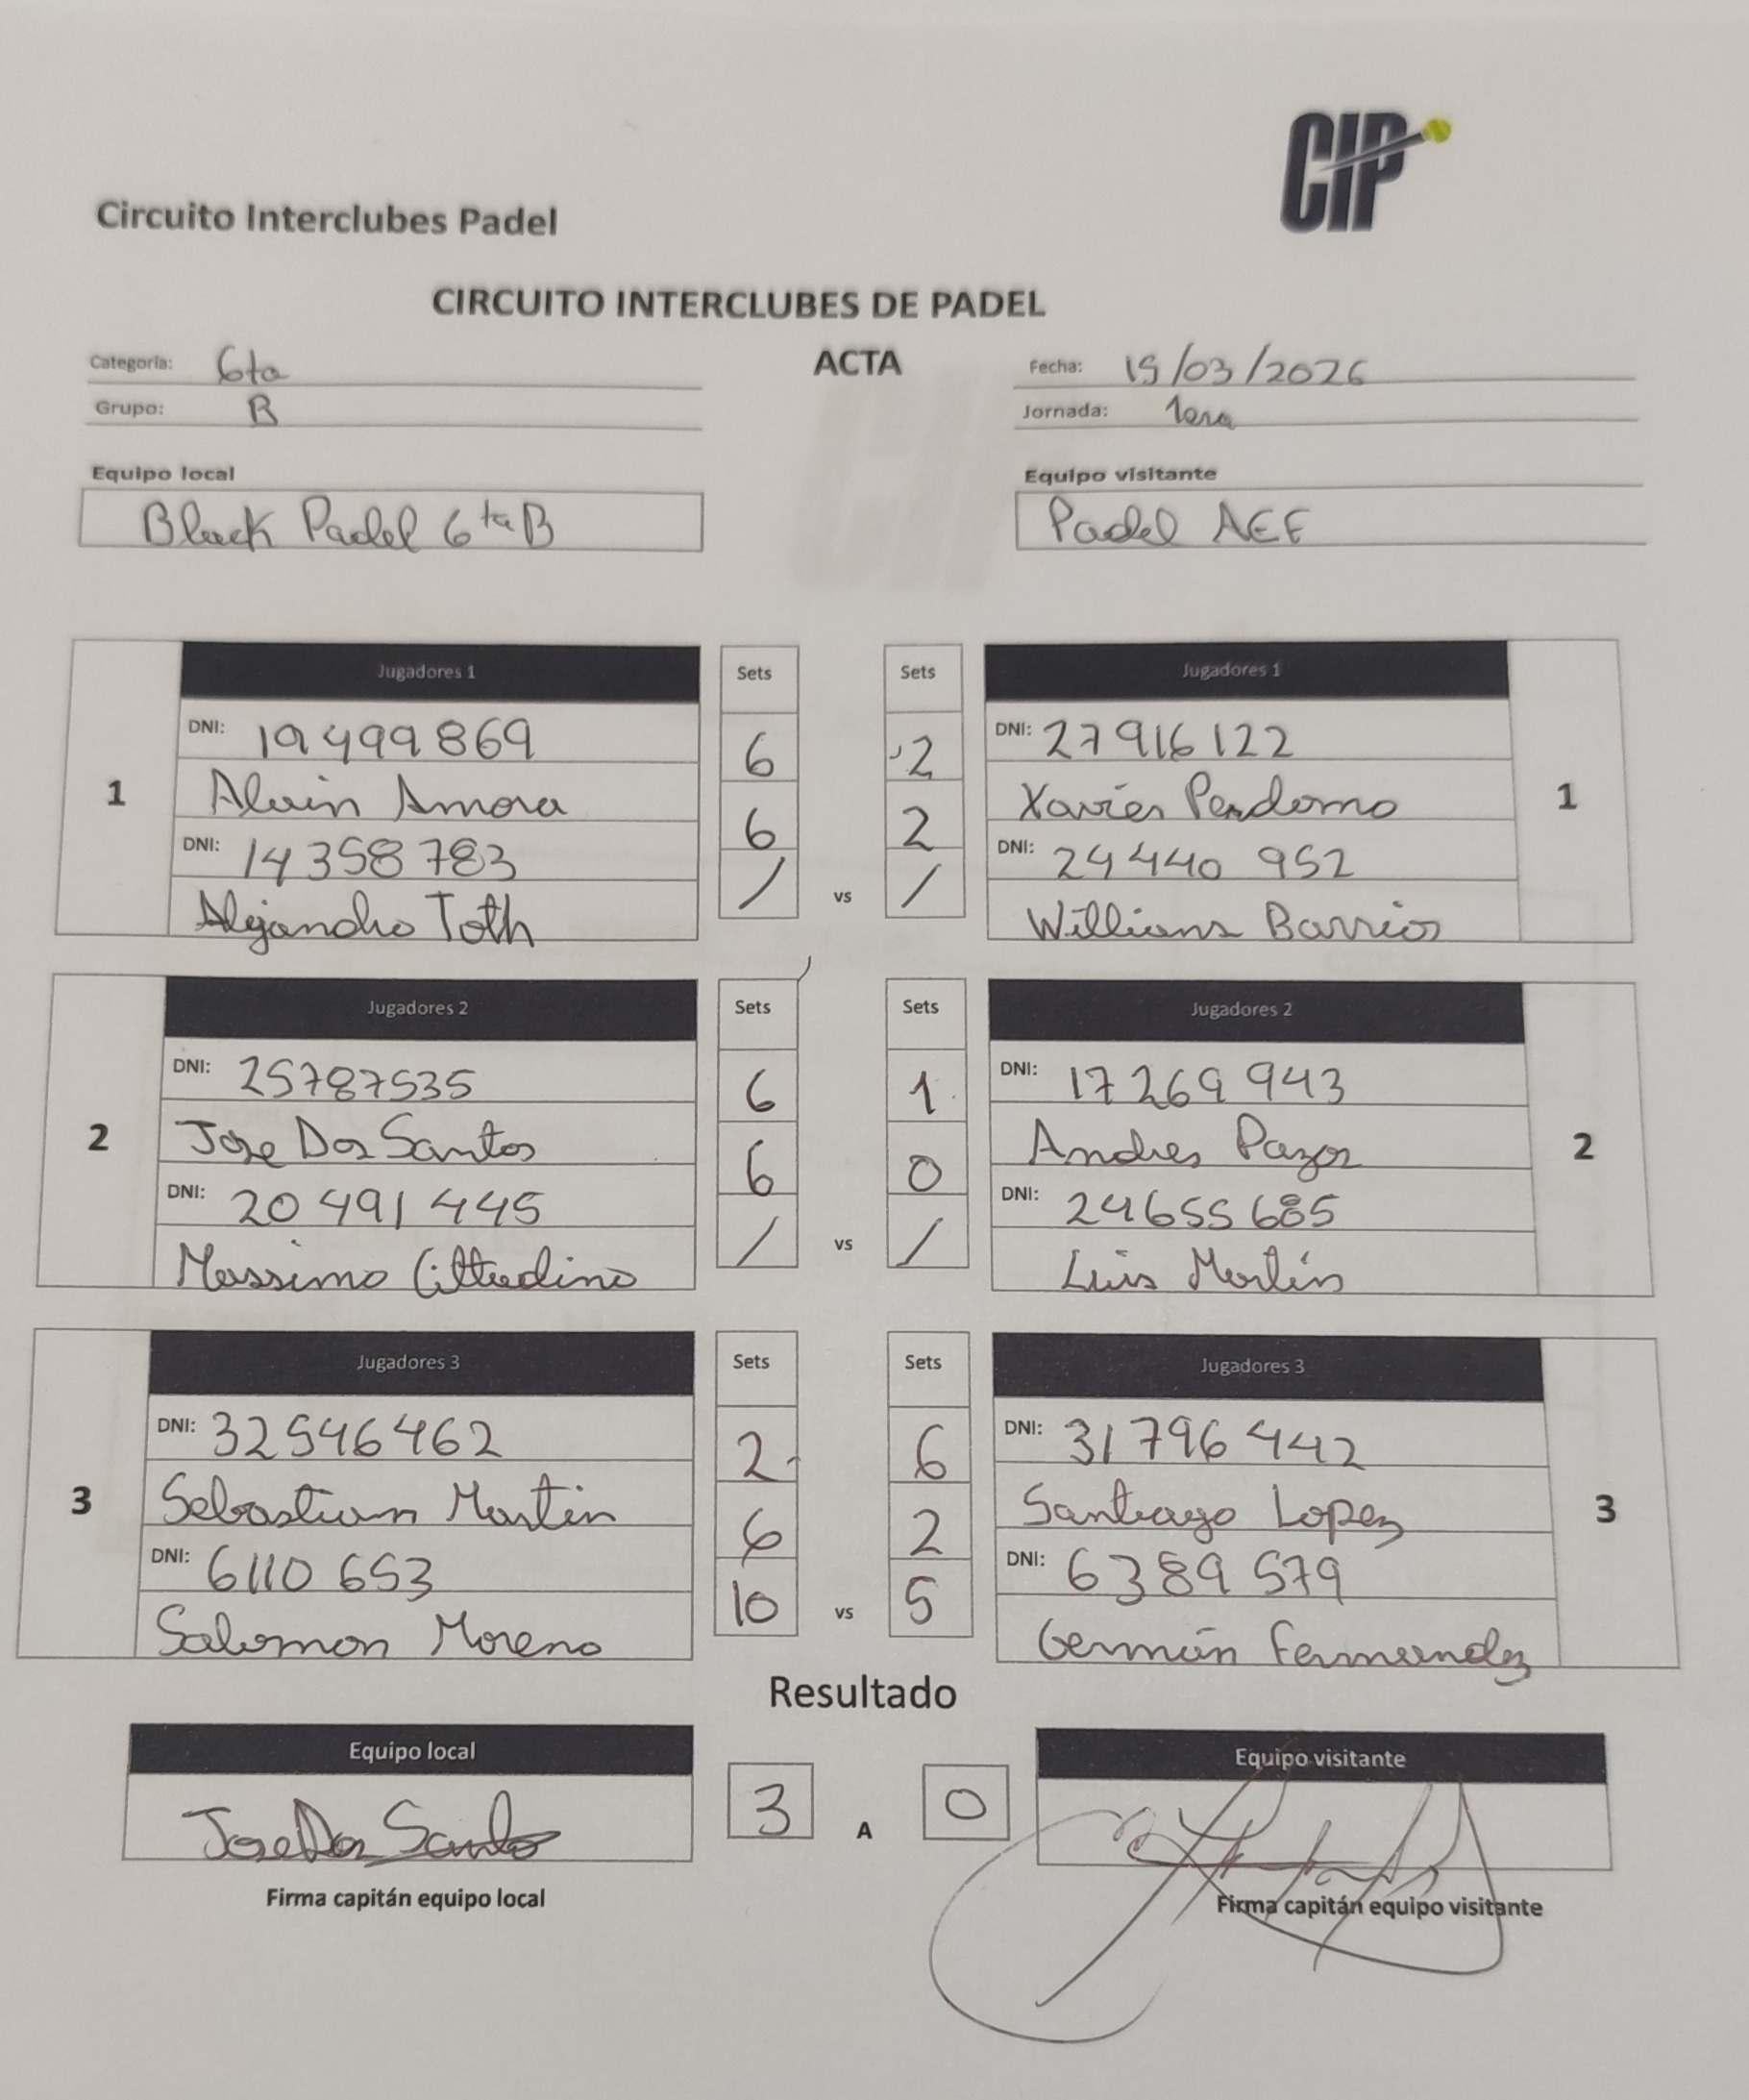 CIP
Circuito Interclubes Padel
CIRCUITO INTERCLUBES DE PADEL
ACTA
Categoría: 6ta
Fecha: 15/03/2026
Grupo: B
Jornada: 1era
Equipo local
Equipo visitante
Black Padel 6ta B
Padel AEE
Jugadores 1
Sets
Sets
Jugadores 1
1
DNI: 19499869
6
2
DNI: 27916122
1
Alvin Amora
Xavier Perdomo
6
2
DNI: 14358783
DNI: 24440 952
/
vs
/
Alejandro Toth
Willians Barrios
Jugadores 2
Sets
Sets
Jugadores 2
2
DNI: 25787535
6
1
DNI: 17269 943
2
Jose Dos Santos
Andres Pazos
6
0
DNI: 20 491 445
DNI: 24655685
/
vs
/
Massimo Cittadino
Luis Martín
Jugadores 3
Sets
Sets
Jugadores 3
3
DNI: 32546462
2
6
DNI: 31796442
3
Sebastian Martin
Santiago Lopez
6
2
DNI: 6110 653
DNI: 6389 579
10
vs
5
Salomon Moreno
Germán Fernandez
Resultado
Equipo local
Equipo visitante
Jose Dos Santos
3
A
0
Firma capitán equipo local
Firma capitán equipo visitante